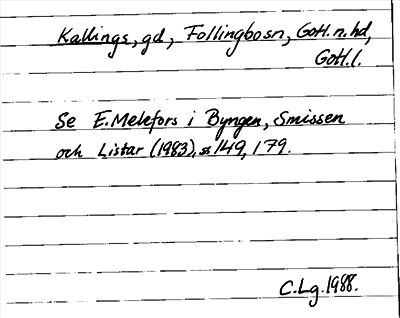 Kallings, gd, Follingbosn, Gotl. n. hd,
Gotl. l.
Se E. Melefors i Byngen, Smissen
och Listar (1983), s. 149, 179.
C. Lg. 1988.